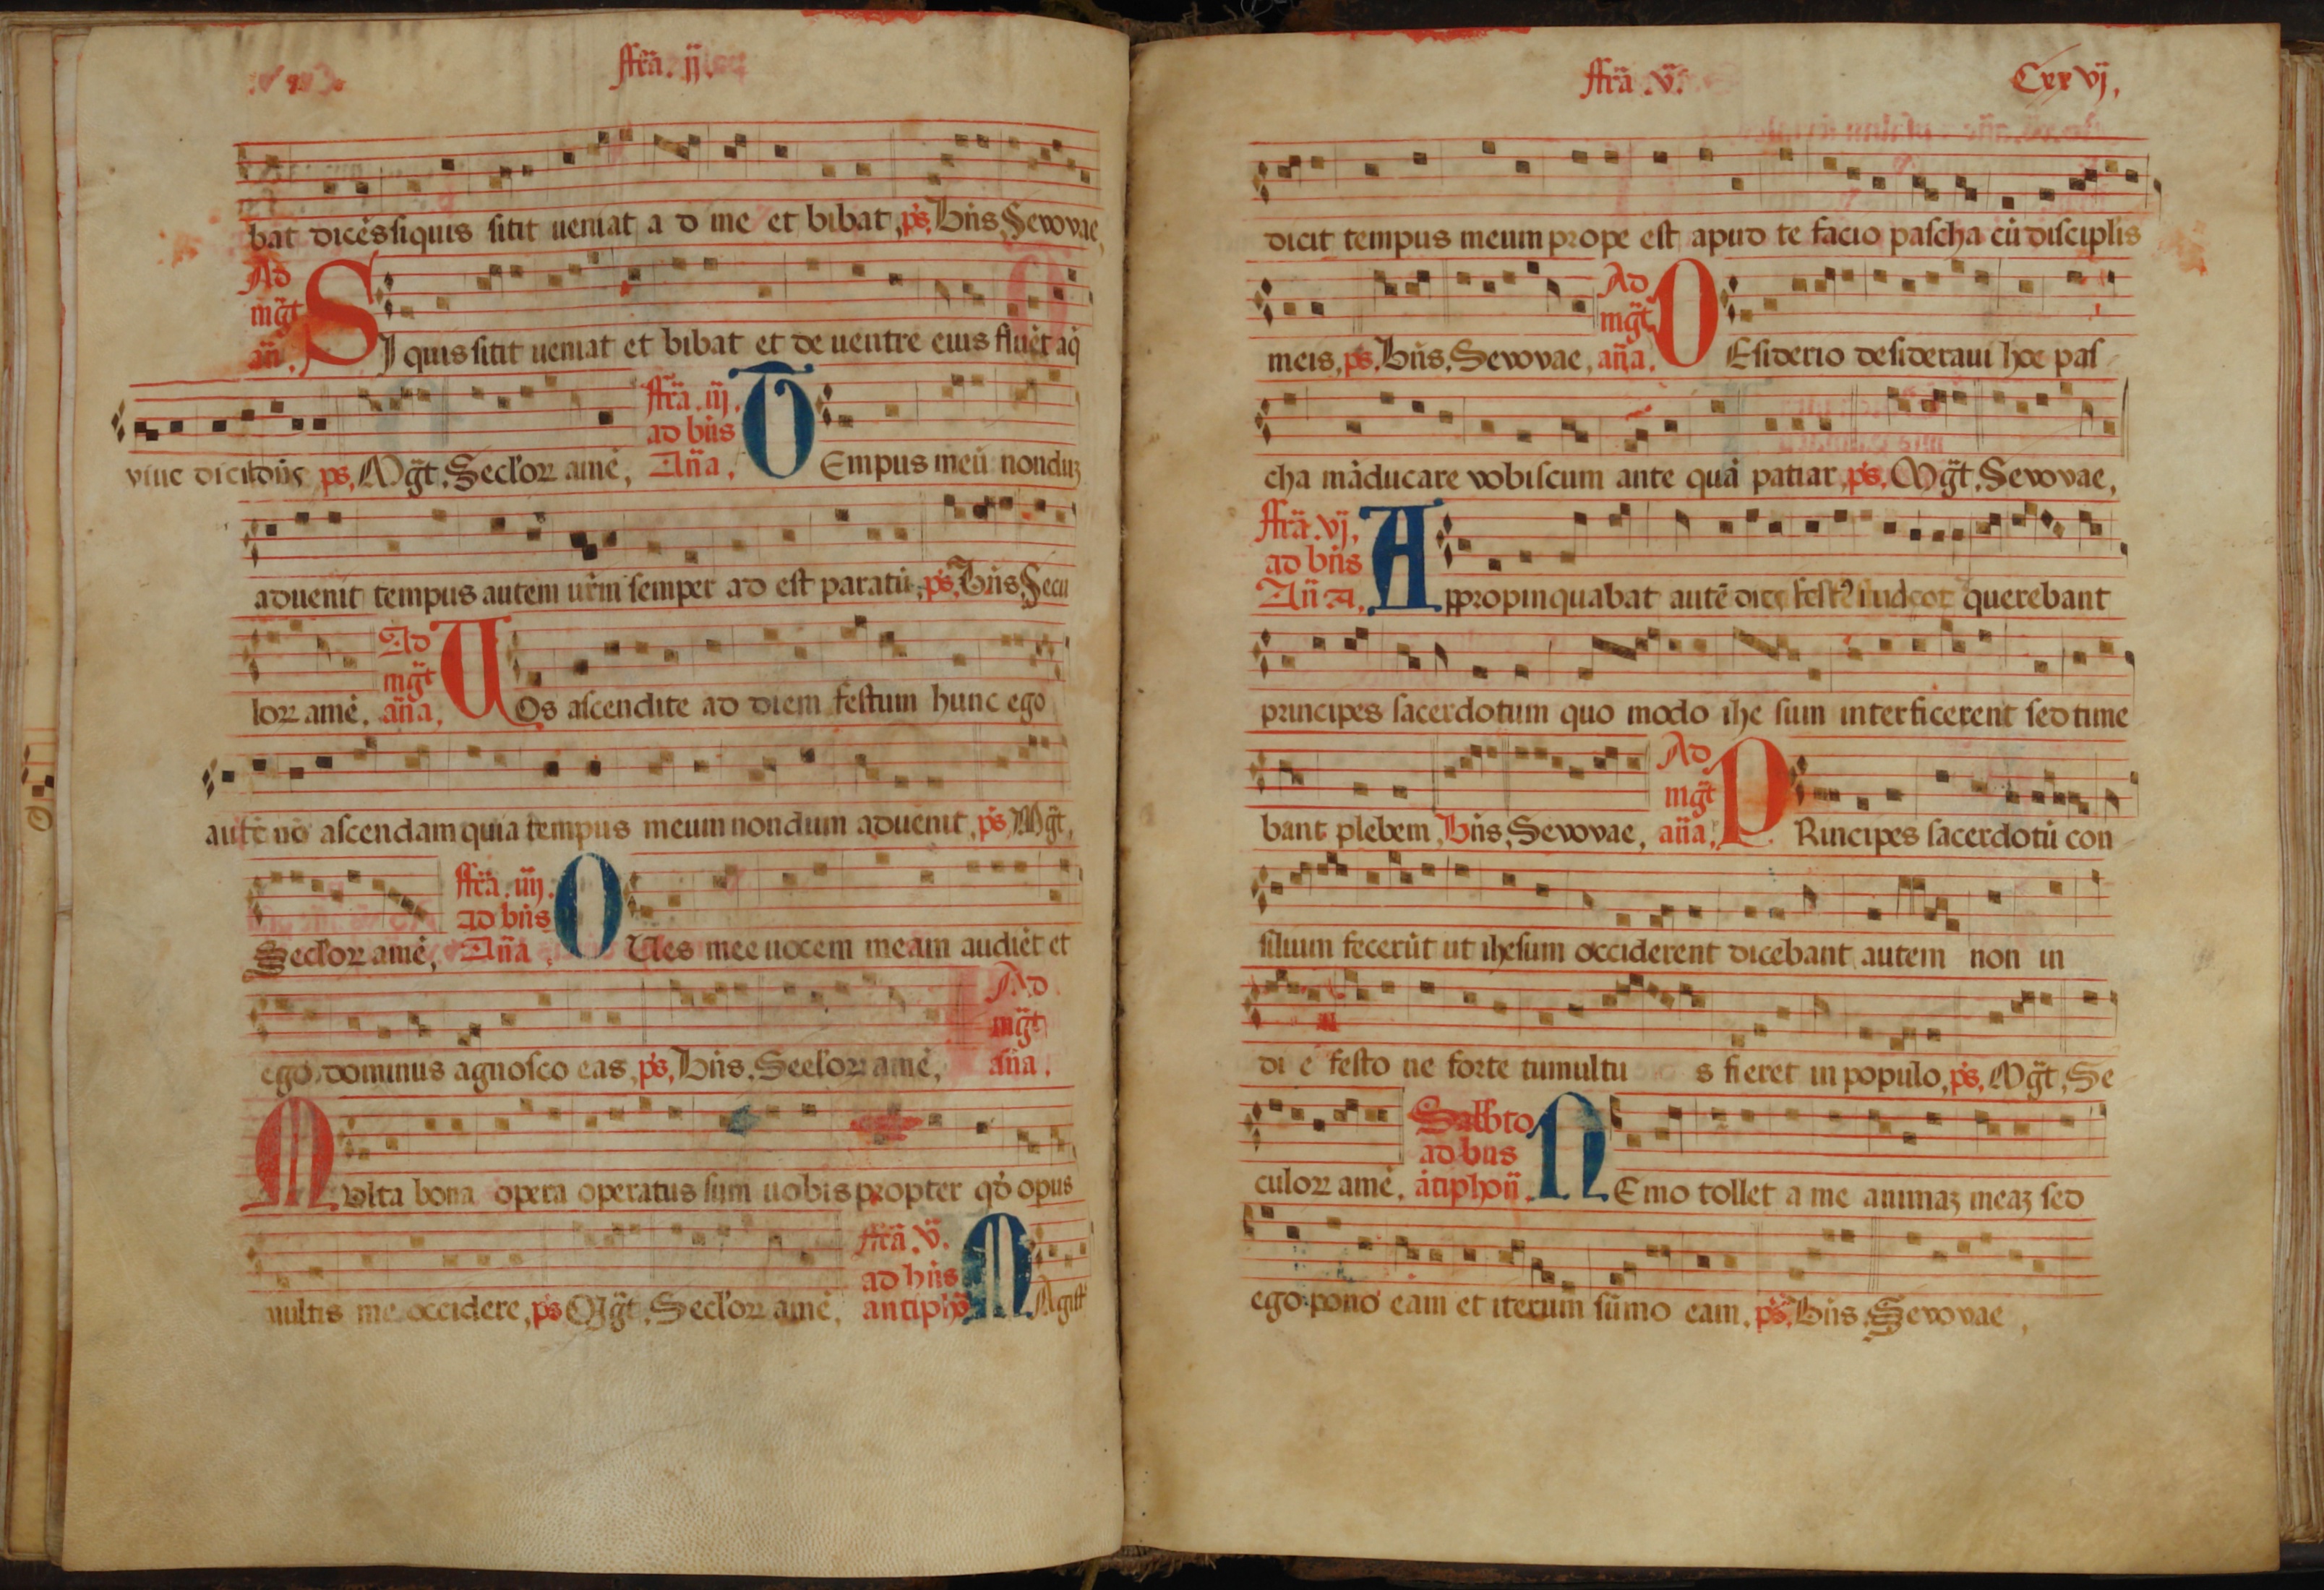 ffr̄a. ij.
bat dicēs siquis sitit ueniat a d me et bibat, ps, Bn̄s. Sevovae,
Ad
mḡt
an̄.
SI quis sitit ueniat et bibat et de uentre eius fluēt aq̄
viue dicit dn̄s ps, Mḡt. Secl'oꝝ amē,
ffr̄a. iij.
ad bn̄s
An̄a,
TEmpus meū nonduꝫ
aduenit tempus autem ur̄m semper ad est paratū, ps, Bn̄s. Secu
loꝝ amē,
Ad
mḡt
an̄a,
UOs ascendite ad diem festum hunc ego
autē nō ascendam quia tempus meum nondum aduenit, ps Mḡt,
Secl'oꝝ amē,
ffr̄a. iiij.
ad bn̄s
An̄a,
OUes mee uocem meam audiēt et
ego dominus agnosco eas, ps, Bn̄s. Secl'oꝝ amē,
Ad
mḡt
an̄a,
MUlta bona opera operatus sum uobis propter qd̄ opus
uultis me occidere, ps Mḡt. Secl'oꝝ amē,
ffr̄a. v.
ad bn̄s
antiph̄
MAgist̄
ffr̄a .v.
Cxxvj,
dicit tempus meum prope est apud te facio pascha cū discipl̄is
meis, ps. Bn̄s. Sevovae,
Ad
mḡt,
an̄a.
DEsiderio desideraui hoc pas
cha māducare vobiscum ante quā patiar, ps, Mḡt. Sevovae,
ffr̄a. vj,
ad bn̄s
An̄a,
Appropinquabat autē dies fest⁹ iudeoꝝ querebant
principes sacerdotum quo modo ihesum interficerent sed time
bant plebem, Bn̄s, Sevovae,
Ad
mḡt
an̄a,
PRincipes sacerdotū con
silium fecerūt ut ihesum occiderent dicebant autem non in
di e festo ne forte tumultu s fieret in populo, ps, Mḡt, Se
culoꝝ amē,
Sabb̄to
ad bn̄s
ātiphon̄,
NEmo tollet a me animaꝫ meaꝫ sed
ego pono eam et iterum sūmo eam, ps, Bn̄s. Sevovae,